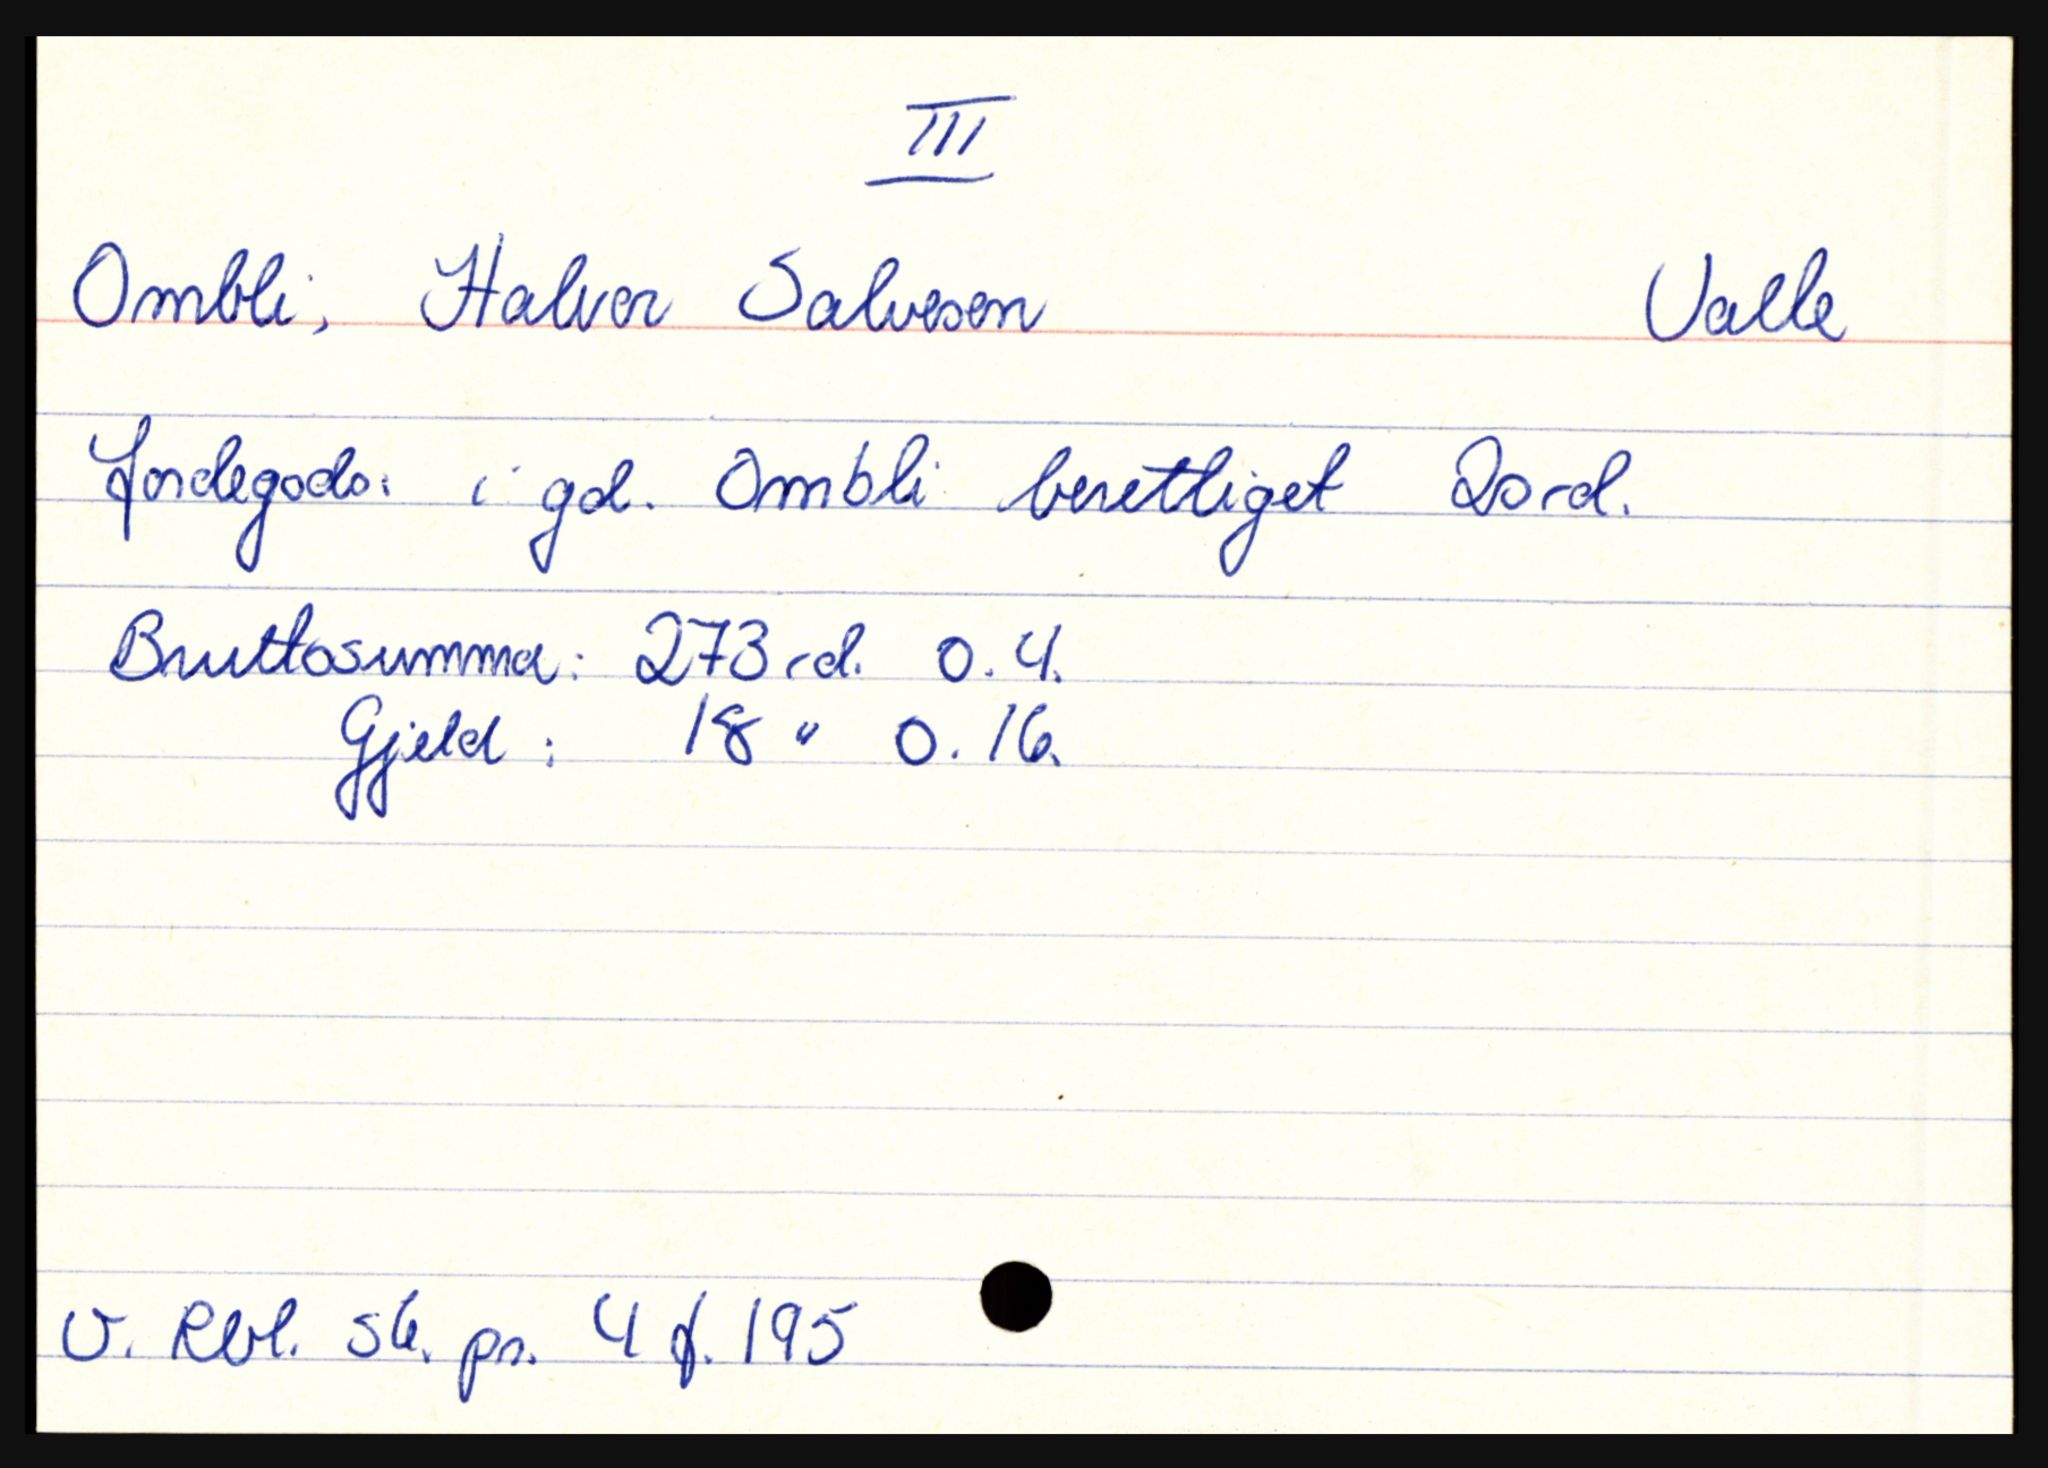 III
Ombli, Halvor Salvesen Valle
Jordegods: i gd. Ombli berettiget 20 rd.
Bruttosumma: 273 rd. 0. 4.
Gjeld: 18 " 0. 16.
V. Rbl. sk. pr. 4 f. 195